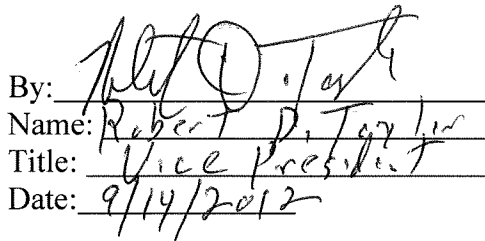 By:
Name: Robert D. Taylor
Title: Vice President
Date: 9/14/2012